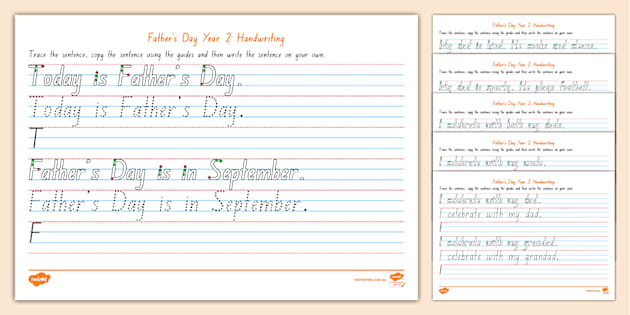 Father's Day Year 2 Handwriting
Trace the sentence, copy the sentence using the guides and then write the sentence on your own.
Today is Father's Day.
Today is Father's Day.
T
Father's Day is in September.
Father's Day is in September.
F
twinkl
Father's Day Year 2 Handwriting
Trace the sentence, copy the sentence using the guides and then write the sentence on your own.
My dad is
Father's Day Year 2 Handwriting
Trace the sentence, copy the sentence using the guides and then write the sentence on your own.
My dad is sporty. He plays football.
Father's Day Year 2 Handwriting
Trace the sentence, copy the sentence using the guides and then write the sentence on your own.
I celebrate with both my dads.
Father's Day Year 2 Handwriting
Trace the sentence, copy the sentence using the guides and then write the sentence on your own.
I celebrate with my
Father's Day Year 2 Handwriting
Trace the sentence, copy the sentence using the guides and then write the sentence on your own.
I celebrate with my dad.
I celebrate with my dad.
I
I celebrate with my grandad.
I celebrate with my grandad.
I